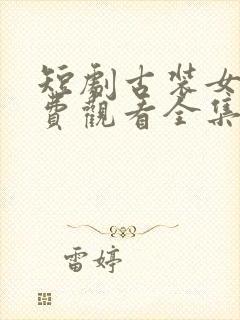 短劇古裝女
費觀看全集
雷婷